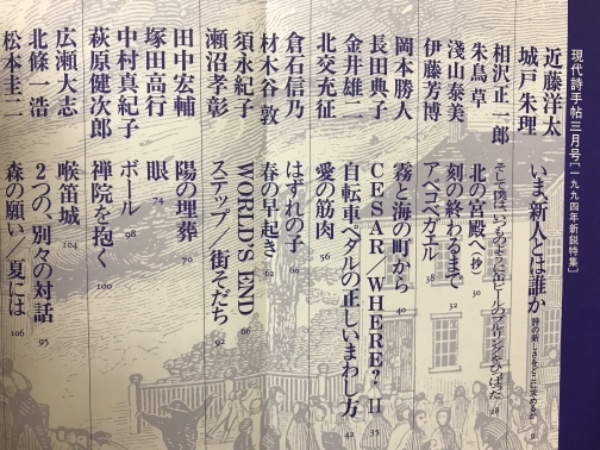 現代詩手帖三月号[一九九四年新鋭特集]
近藤洋太
城戸朱理 いま、新人とは誰か 詩の新しさをどこに求めるか 9
相沢正一郎 そして僕は、いつものように缶ビールのプルリングをひっぱった 28
朱鳥草 北の宮殿へ(抄) 30
淺山泰美 刻の終わるまで 32
伊藤芳博 アベコベガエル 38
岡本勝人 霧と海の町から 40
長田典子 CESAR/WHERE? II 35
金井雄二 自転車ペダルの正しいまわし方 42
北交充征 愛の筋肉 56
倉石信乃 はずれの子 60
材木谷敦 春の早起き 62
須永紀子 WORLD'S END 66
瀬沼孝彰 ステップ/街そだち 92
田中宏輔 陽の埋葬 70
塚田高行 眼 74
中村真紀子 ボール 98
萩原健次郎 禅院を抱く 100
広瀬大志 喉笛城 104
北條一浩 2つの、別々の対話 95
松本圭二 森の願い/夏には 106